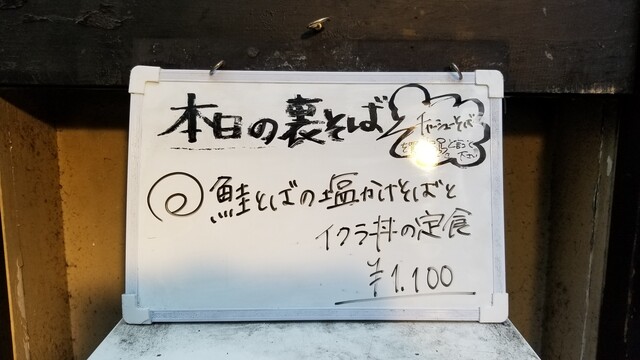 本日の裏そば
チャーシューそば
と言って
下さい
◎鮭とばの塩かけそばと
イクラ丼の定食
¥1.100